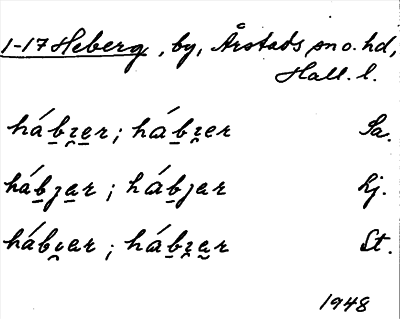 1-17 Heberg, by, Årstads sn o. hd,
Hall. l.
hábʒ̨er; hábʒ̨er Sa.
hábʒar; hábjar Lj.
hábı̨ar; hábʒ̨ar St.
1948